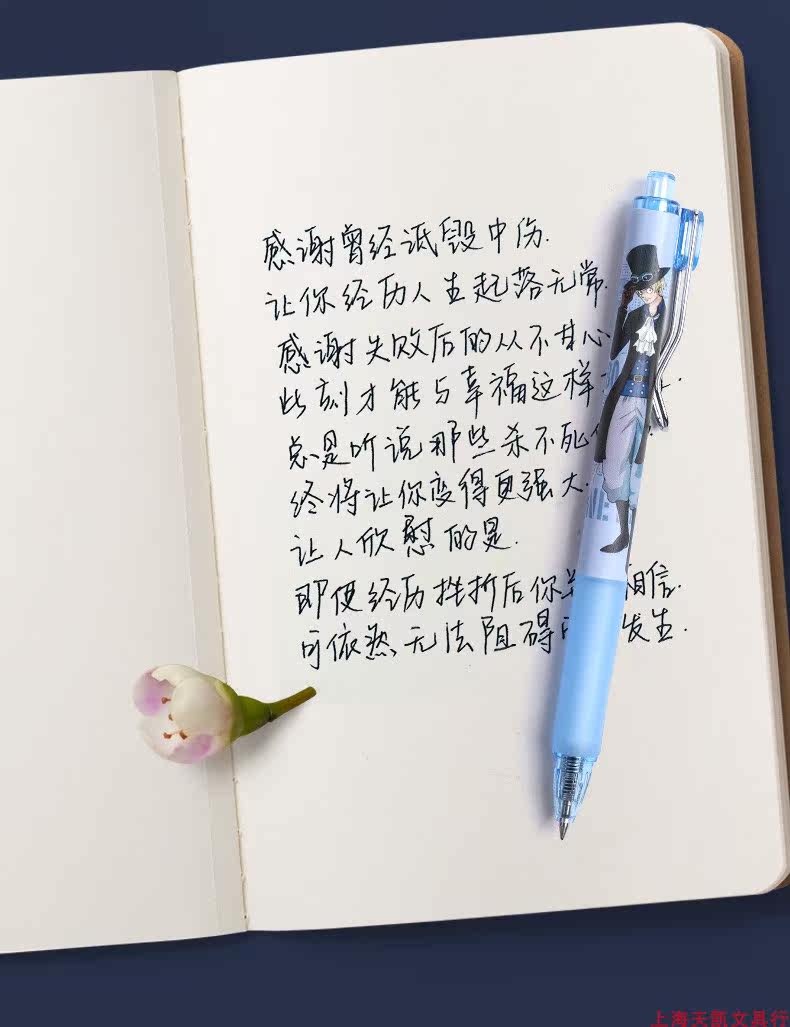 感谢曾经诋毁中伤.
让你经历人生起落无常.
感谢失败后的从不甘心
此刻才能与幸福这样
总是听说那些杀不死
终将让你变得更强大.
让人欣慰的是.
即便经历挫折后你 相信.
可依然无法阻碍 发生.
上海天凯文具行